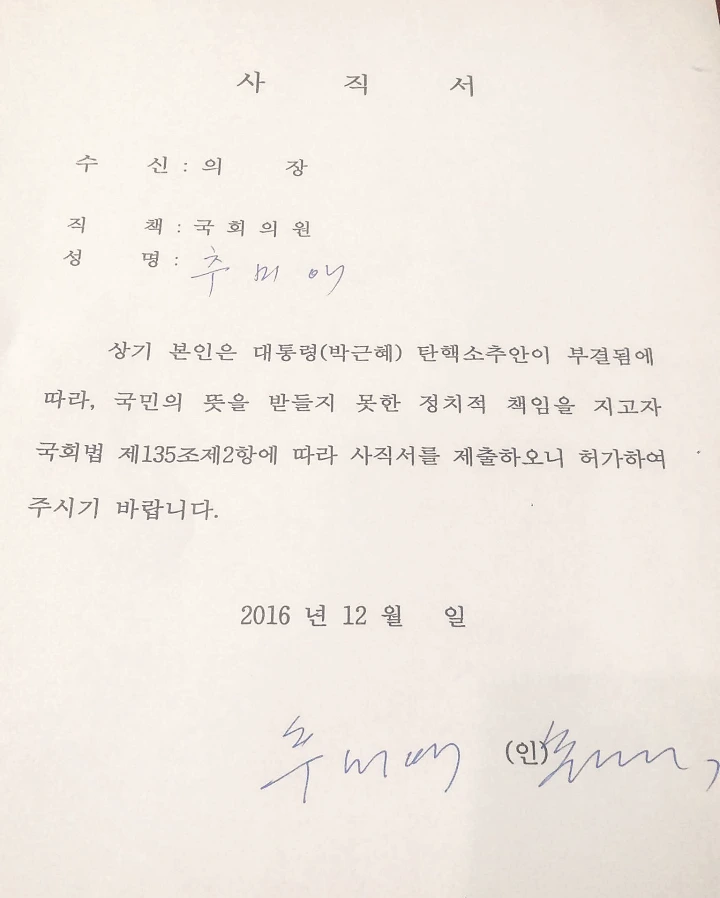 사 직 서
수 신 : 의 장
직 책 : 국 회 의 원
성 명 : 추 미 애
상기 본인은 대통령(박근혜) 탄핵소추안이 부결됨에
따라, 국민의 뜻을 받들지 못한 정치적 책임을 지고자
국회법 제135조제2항에 따라 사직서를 제출하오니 허가하여
주시기 바랍니다.
2016 년 12 월 일
추 미 애 (인)